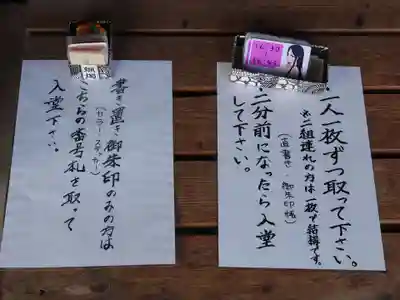 ・一人一枚ずつ取って下さい。
※二組連れの方は一枚で結構です。
(直書き・御朱印帳)
・二分前になったら入堂
して下さい。
書き置き御朱印のみの方は
こちらの番号札を取って
入堂して下さい。